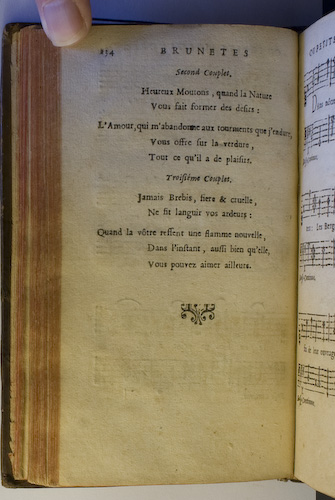 234 BRUNETES
Second Couplet.
Heureux Moutons, quand la Nature
Vous fait former des desirs :
L'Amour, qui m'abandonne aux tourments que j'endure,
Vous offre sur la verdure,
Tout ce qu'il a de plaisirs.
Troisiéme Couplet.
Jamais Brebis, fiere & cruelle,
Ne fit languir vos ardeurs :
Quand la vôtre ressent une flamme nouvelle,
Dans l'instant, aussi bien qu'elle,
Vous pouvez aimer ailleurs.